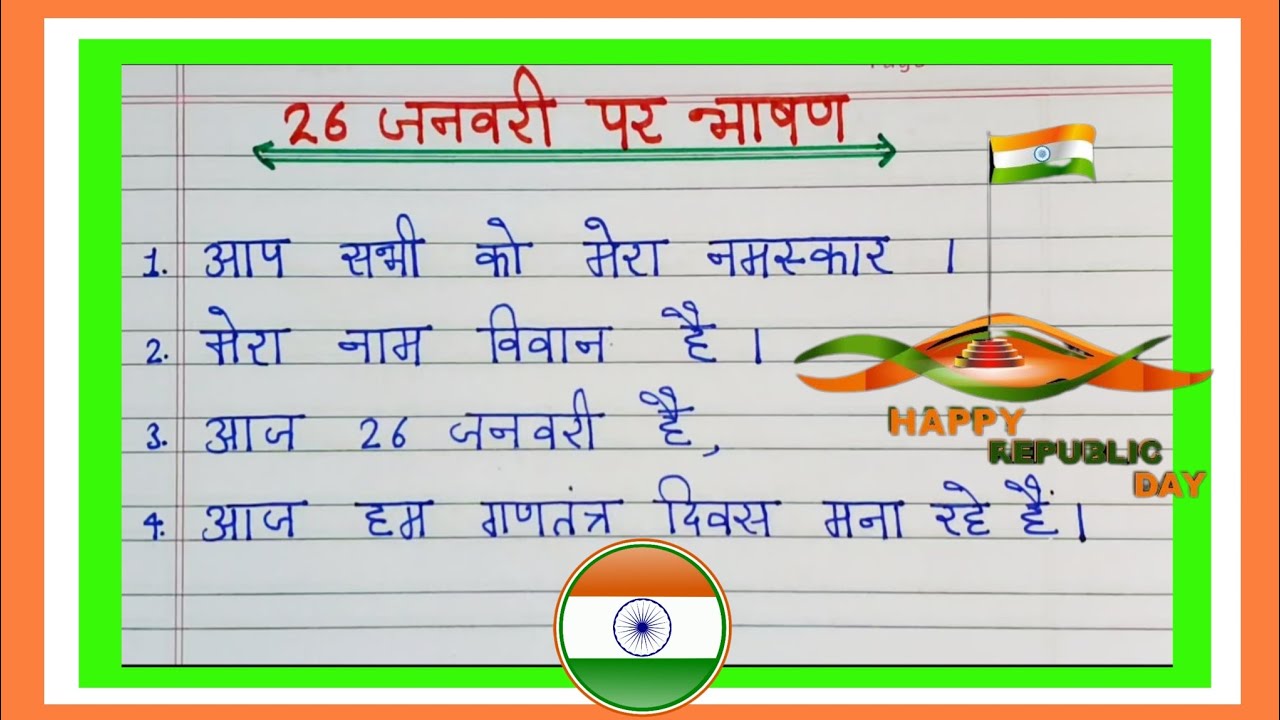 Page
26 जनवरी पर भाषण
1. आप सभी को मेरा नमस्कार ।
2. मेरा नाम विवान है ।
3. आज 26 जनवरी है,
4. आज हम गणतंत्र दिवस मना रहे हैं।
HAPPY
REPUBLIC
DAY